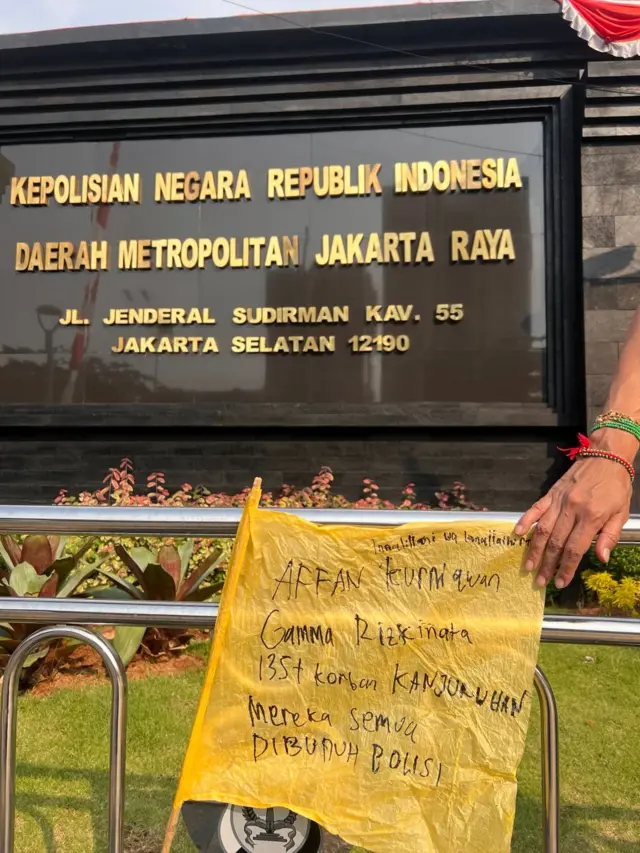 KEPOLISIAN NEGARA REPUBLIK INDONESIA
DAERAH METROPOLITAN JAKARTA RAYA
JL. JENDERAL SUDIRMAN KAV. 55
JAKARTA SELATAN 12190
AFFAN kurniawan
Gamma Rizkinata
135+ korban KANJURUHAN
Mereka semua
DIBUNUH POLISI